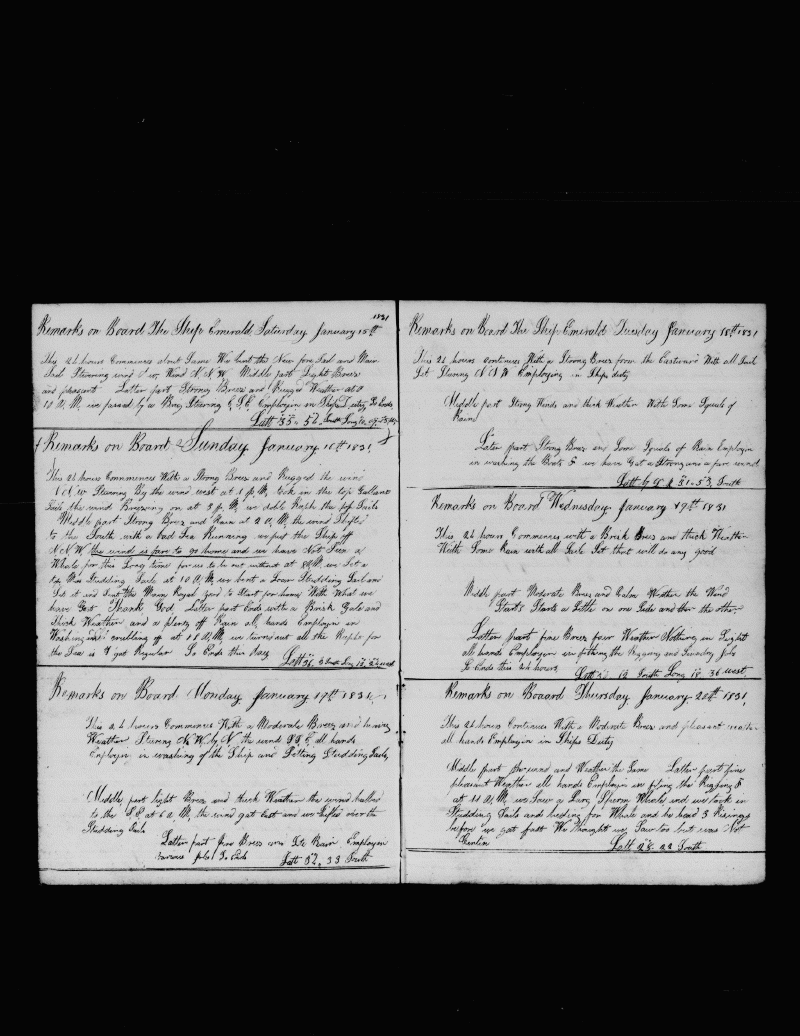 1831
Remarks on Board The Ship Emerald Saturday January 15th
This 24 hours Commences about Same We bent the New fore Sail and Main
Sail Stearing wind N.N.W Middle part Light Brees
and pleasant Latter part Strong Brees and Rugged Weather at
10 A,M, we passed by a Brig Stearing E,S,E, Employin in Ships Duty So Ends
Latt 35. 52. South Long
Remarks on Board Sunday January 16th 1831,
This 24 hours Commences With a Strong Brees and Rugged the wind
N.W Stearing By the wind west at 1 p,M, took in the top Gallant
Sails the wind Breesing on at 3 p,M, we doble Reefh the top Sails
Middle part Strong Brees and Rain at 2 A,M, the wind Shifted
to the South with a Bad Sea Running we put the Ship off
N.N.W the wind is fare to go home and we have Not Seen a
Whale for this Long time for us to be out without at 8 A,M, we Set a
top Mas Studding Saile at 10 A,M, we bent a Loar Studding Sail and
Set it and Sent the Main Royal Yard to Start for home With What we
have Got Thank God, Latter part Ends with a Brisk Gale and
thick Weather and a plenty off Rain all hands Employin in
Washing off at 11 A,M, we turned out all the Reefs for
the Sea is got Regular So Ends this Day
Latt 36, 3 South Long 18, 52 west
Remarks on Board Monday January 17th 1831,
This 24 hours Commences With a Moderate Brees and heavy
Weather Stearing N,W, by N, the wind S,S,E, all hands
Employin in washing of the Ship and Setting Studding Sails,
Middle, part light Brees and thick Weather the wind halled
to the S,E, at 6 A,M, the wind got East and we Shifted over the
Studding Sails
Latter part fine Brees and Rain Employin
Jobs So Ends Latt 32. 33 South
Remarks on Board The Ship Emerald Tuesday January 18th 1831
This 24 hours Continues With a Strong Brees from the Eastward With all Sail
Set Stearing N N W Employing in Ships duty
Middle part Strong Winds and thick Weather With Some Squals of
Rain
Later part Strong Brees and Some Squals of Rain Employin
in washing the Boats & we have Got a Strong and a fare wind
Latt 31.53, South
Remarks on Board Wednesday January 19th 1831
This 24 hours Commences with a Brisk Brees and thick Weather
With Some Rain with all Saile Set that will do any good
Middle part Moderate Brees and Calm Weather the Wind
Starts a Little on one Side and the other
Latter part fine Brees four Weather Nothing in Sight
all hands Employin in fitting the Rigging and Sundray Jobs
So Ends this 24 hours Latt 19 South Long 18. 36 west.
Remarks on Board Thursday January. 20th 1831,
This 24 hours Continues With a Moderate Brees and pleasant weather
all hands Employin in Ships Duty
Middle part the wind and Weather the Same Latter part fine
pleasant Weather all hands Employin in fixing the Rigging &
at 11 A,M, we Saw a Larg Sperm Whale and we took in
Studding Sails and heding for Whale and he had 3 Risings
before we got fast We thought we Saw too but was Not
Latt 28. 22 South